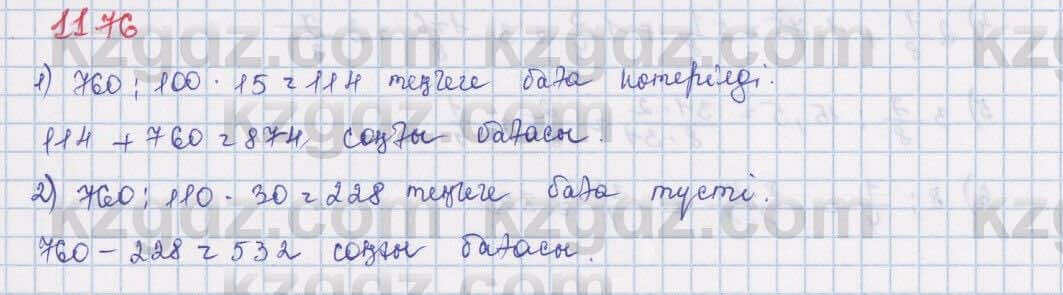 1176
1) 760 : 100 · 15 = 114 теңгеге баға көтерілді.
114 + 760 = 874 соңғы бағасы.
2) 760 : 110 · 30 = 228 теңгеге баға түсті.
760 - 228 = 532 соңғы бағасы.
kzgdz.com